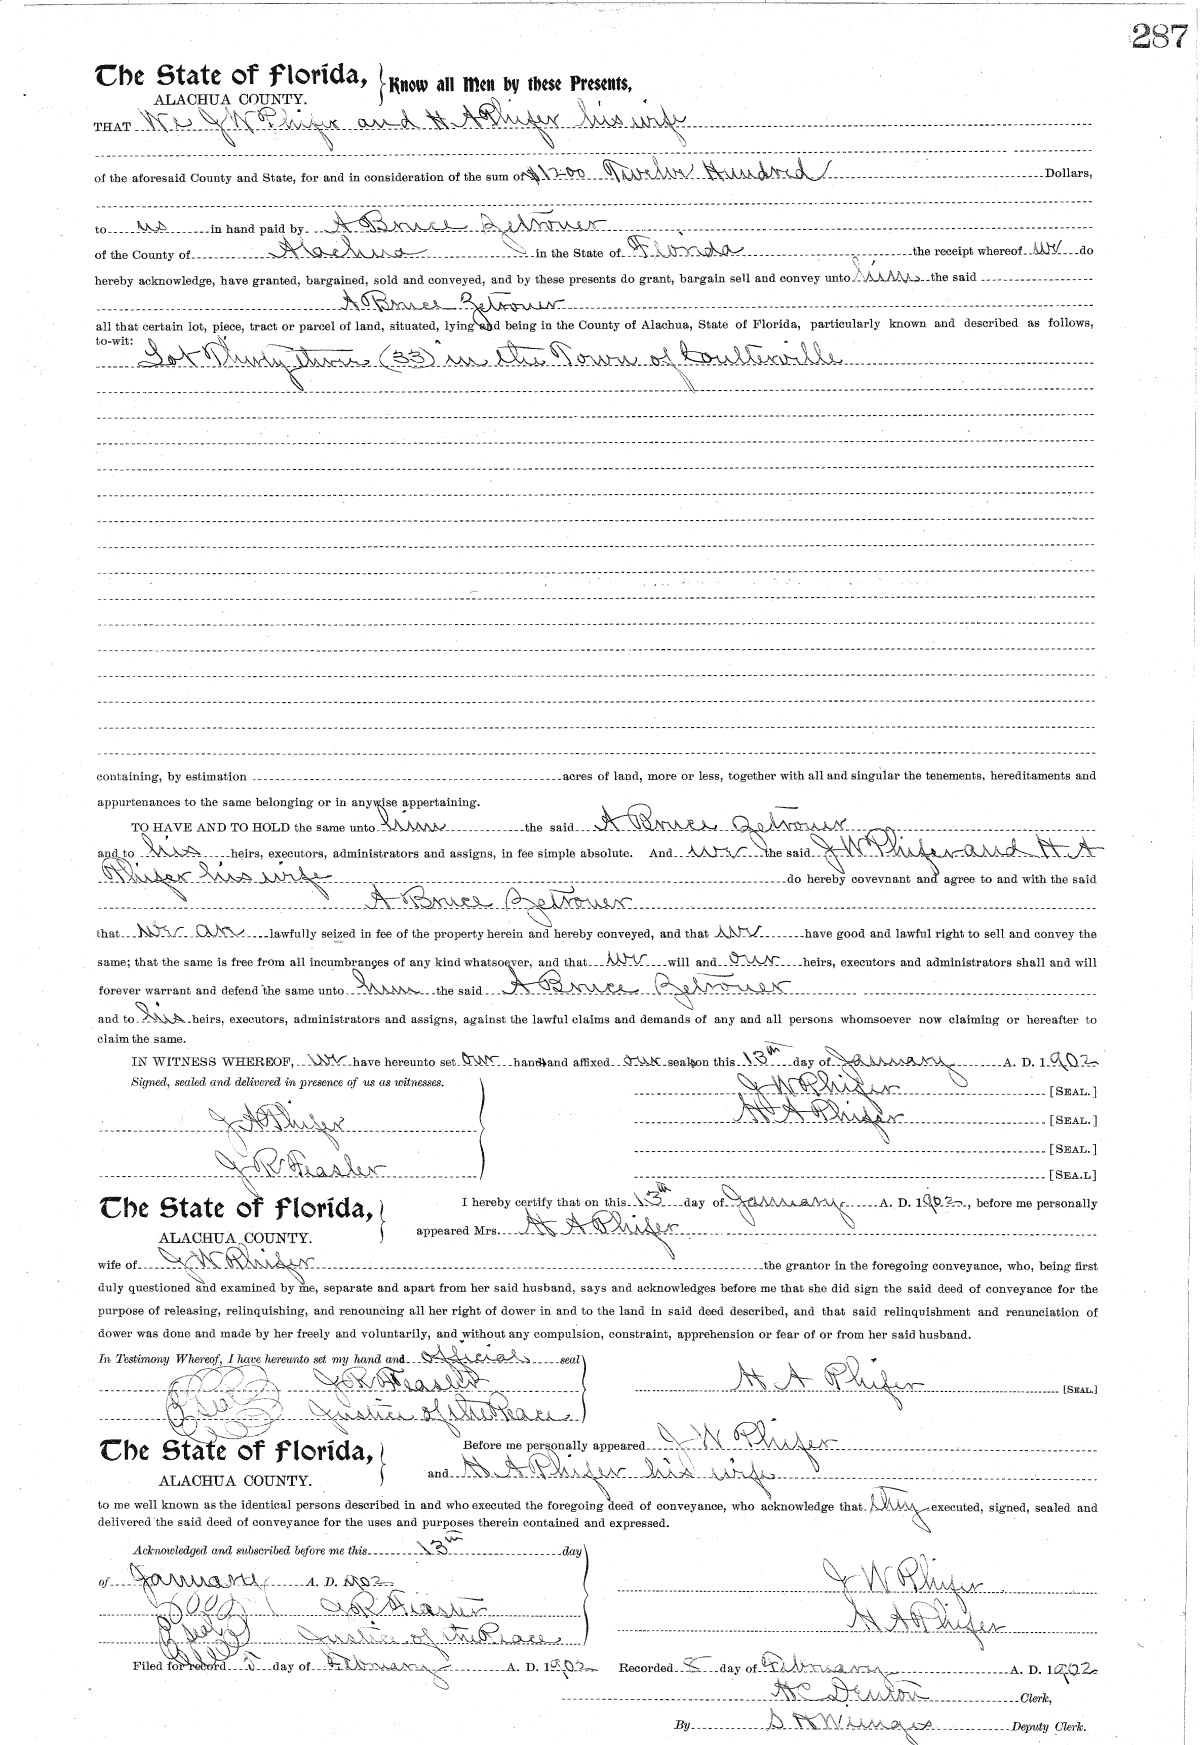 287
The State of Florida, Know all Men by these Presents,
ALACHUA COUNTY.
THAT We J W Phifer and H A Phifer his wife
of the aforesaid County and State, for and in consideration of the sum of $1200 Twelve Hundred Dollars,
to us in hand paid by A Bruce Zetrouer
of the County of Alachua in the State of Florida the receipt whereof we do
hereby acknowledge, have granted, bargained, sold and conveyed, and by these presents do grant, bargain sell and convey unto him the said
A Bruce Zetrouer
all that certain lot, piece, tract or parcel of land, situated, lying and being in the County of Alachua, State of Florida, particularly known and described as follows,
to-wit:
Lot Thirty three (33) in the Town of Coulterville
containing, by estimation acres of land, more or less, together with all and singular the tenements, hereditaments and
appurtenances to the same belonging or in anywise appertaining.
TO HAVE AND TO HOLD the same unto him the said A Bruce Zetrouer
and to his heirs, executors, administrators and assigns, in fee simple absolute. And we the said J W Phifer and H A
Phifer his wife do hereby covevnant and agree to and with the said
A Bruce Zetrouer
that we are lawfully seized in fee of the property herein and hereby conveyed, and that we have good and lawful right to sell and convey the
same; that the same is free from all incumbranges of any kind whatsoever, and that we will and our heirs, executors and administrators shall and will
forever warrant and defend the same unto him the said A Bruce Zetrouer
and to his heirs, executors, administrators and assigns, against the lawful claims and demands of any and all persons whomsoever now claiming or hereafter to
claim the same.
IN WITNESS WHEREOF, we have hereunto set our hands and affixed our seals on this 13th day of January A. D. 1902
Signed, sealed and delivered in presence of us as witnesses.
J W Phifer [SEAL.]
H A Phifer [SEAL.]
J A Phifer
[SEAL.]
J R Feasler
[SEA.L]
The State of Florida, I hereby certify that on this 13th day of January A. D. 1902, before me personally
ALACHUA COUNTY. appeared Mrs. H A Phifer
wife of J W Phifer the grantor in the foregoing conveyance, who, being first
duly questioned and examined by me, separate and apart from her said husband, says and acknowledges before me that she did sign the said deed of conveyance for the
purpose of releasing, relinquishing, and renouncing all her right of dower in and to the land in said deed described, and that said relinquishment and renunciation of
dower was done and made by her freely and voluntarily, and without any compulsion, constraint, apprehension or fear of or from her said husband.
In Testimony Whereof, I have hereunto set my hand and official seal
J R Feasler H A Phifer [SEAL.]
Seal Justice of the Peace
The State of Florida, Before me personally appeared J W Phifer
ALACHUA COUNTY. and H A Phifer his wife
to me well known as the identical persons described in and who executed the foregoing deed of conveyance, who acknowledge that they executed, signed, sealed and
delivered the said deed of conveyance for the uses and purposes therein contained and expressed.
Acknowledged and subscribed before me this 13th day
of January A. D. 1902 J W Phifer
J R Feaster
H A Phifer
Seal Justice of the Peace
Filed for record 5 day of February A. D. 1902 Recorded 8 day of February A. D. 1902
H C Denton Clerk,
By S H Wienges Deputy Clerk.